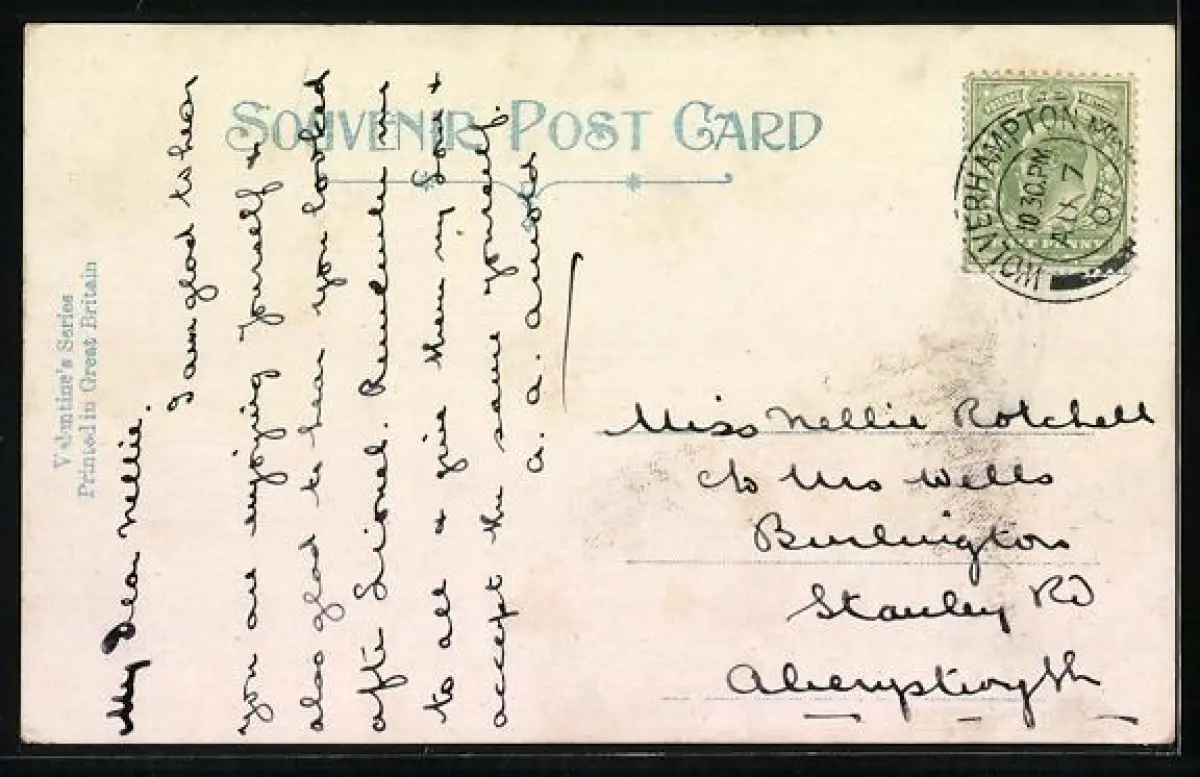 SOUVENIR POST CARD
Valentine's Series
Printed in Great Britain
My Dear Nellie.
I am glad to hear
you are enjoying yourself &
also glad to hear you looked
after Lionel. Remember me
to all & give them my Love &
accept the same yourself.
a. a. Arnold
WOLVERHAMPTON
10 30.PM
AU 7
07
PENNY
Miss Nellie Rotchell
c/o Mrs Wells
Burlington
Stanley Rd
Aberystwyth